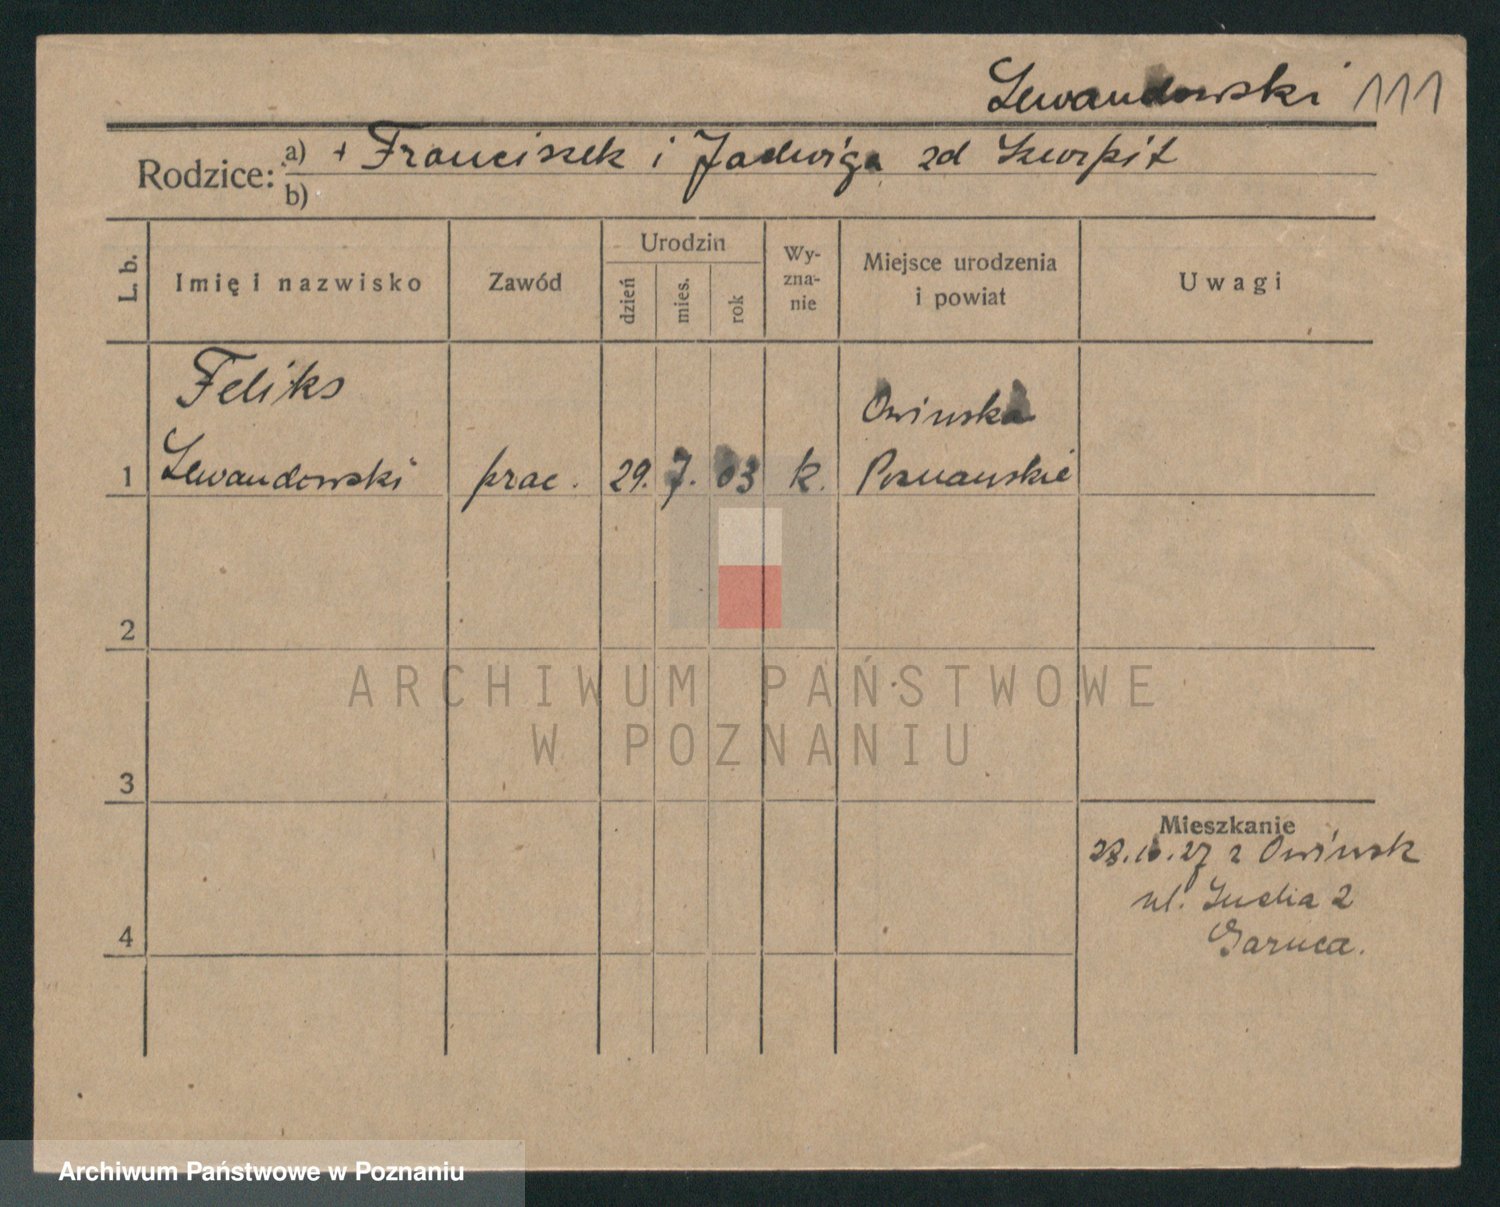 Lewandowski 111
Rodzice: a) + Franciszek i Jadwiga zd Szurpit
b)
L. b.
Imię i nazwisko
Zawód
Urodzin
dzień
mies.
rok
Wy-
zna-
nie
Miejsce urodzenia
i powiat
Uwagi
Feliks
Owinska
1 Lewandowski prac. 29. 7. 03 k. Poznanskie
2
ARCHIWUM PAŃSTWOWE
W POZNANIU
3
Mieszkanie
28.10.27 z Owinsk
ul. 2
4
Archiwum Państwowe w Poznaniu